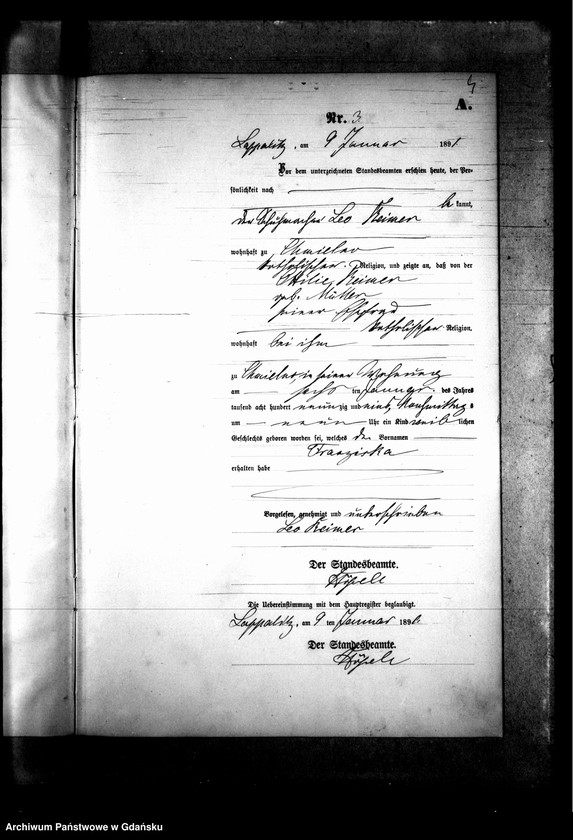 A.
Nr. 3.
Lappalitz, am 9 Januar 1891
Vor dem unterzeichneten Standesbeamten erschien heute, der Per-
sönlichkeit nach
be kannt,
der Schuhmacher Leo Reimer
wohnhaft zu Chmielno
katholischer Religion, und zeigte an, daß von der
Ottilie Reimer
geb. Müller
seiner Ehefrau
katholischer Religion,
wohnhaft bei ihm
zu Chmielno, in seiner Wohnung
am sechs ten Januar des Jahres
tausend acht hundert neunzig und eins, Nachmittags
um neun Uhr ein Kind weib lichen
Geschlechts geboren worden sei, welches den Vornamen
Franziska
erhalten habe
Vorgelesen, genehmigt und unterschrieben
Leo Reimer
Der Standesbeamte.
Die Uebereinstimmung mit dem Hauptregister beglaubigt.
Lappalitz, am 9 ten Januar 1891.
Der Standesbeamte.
Archiwum Państwowe w Gdańsku